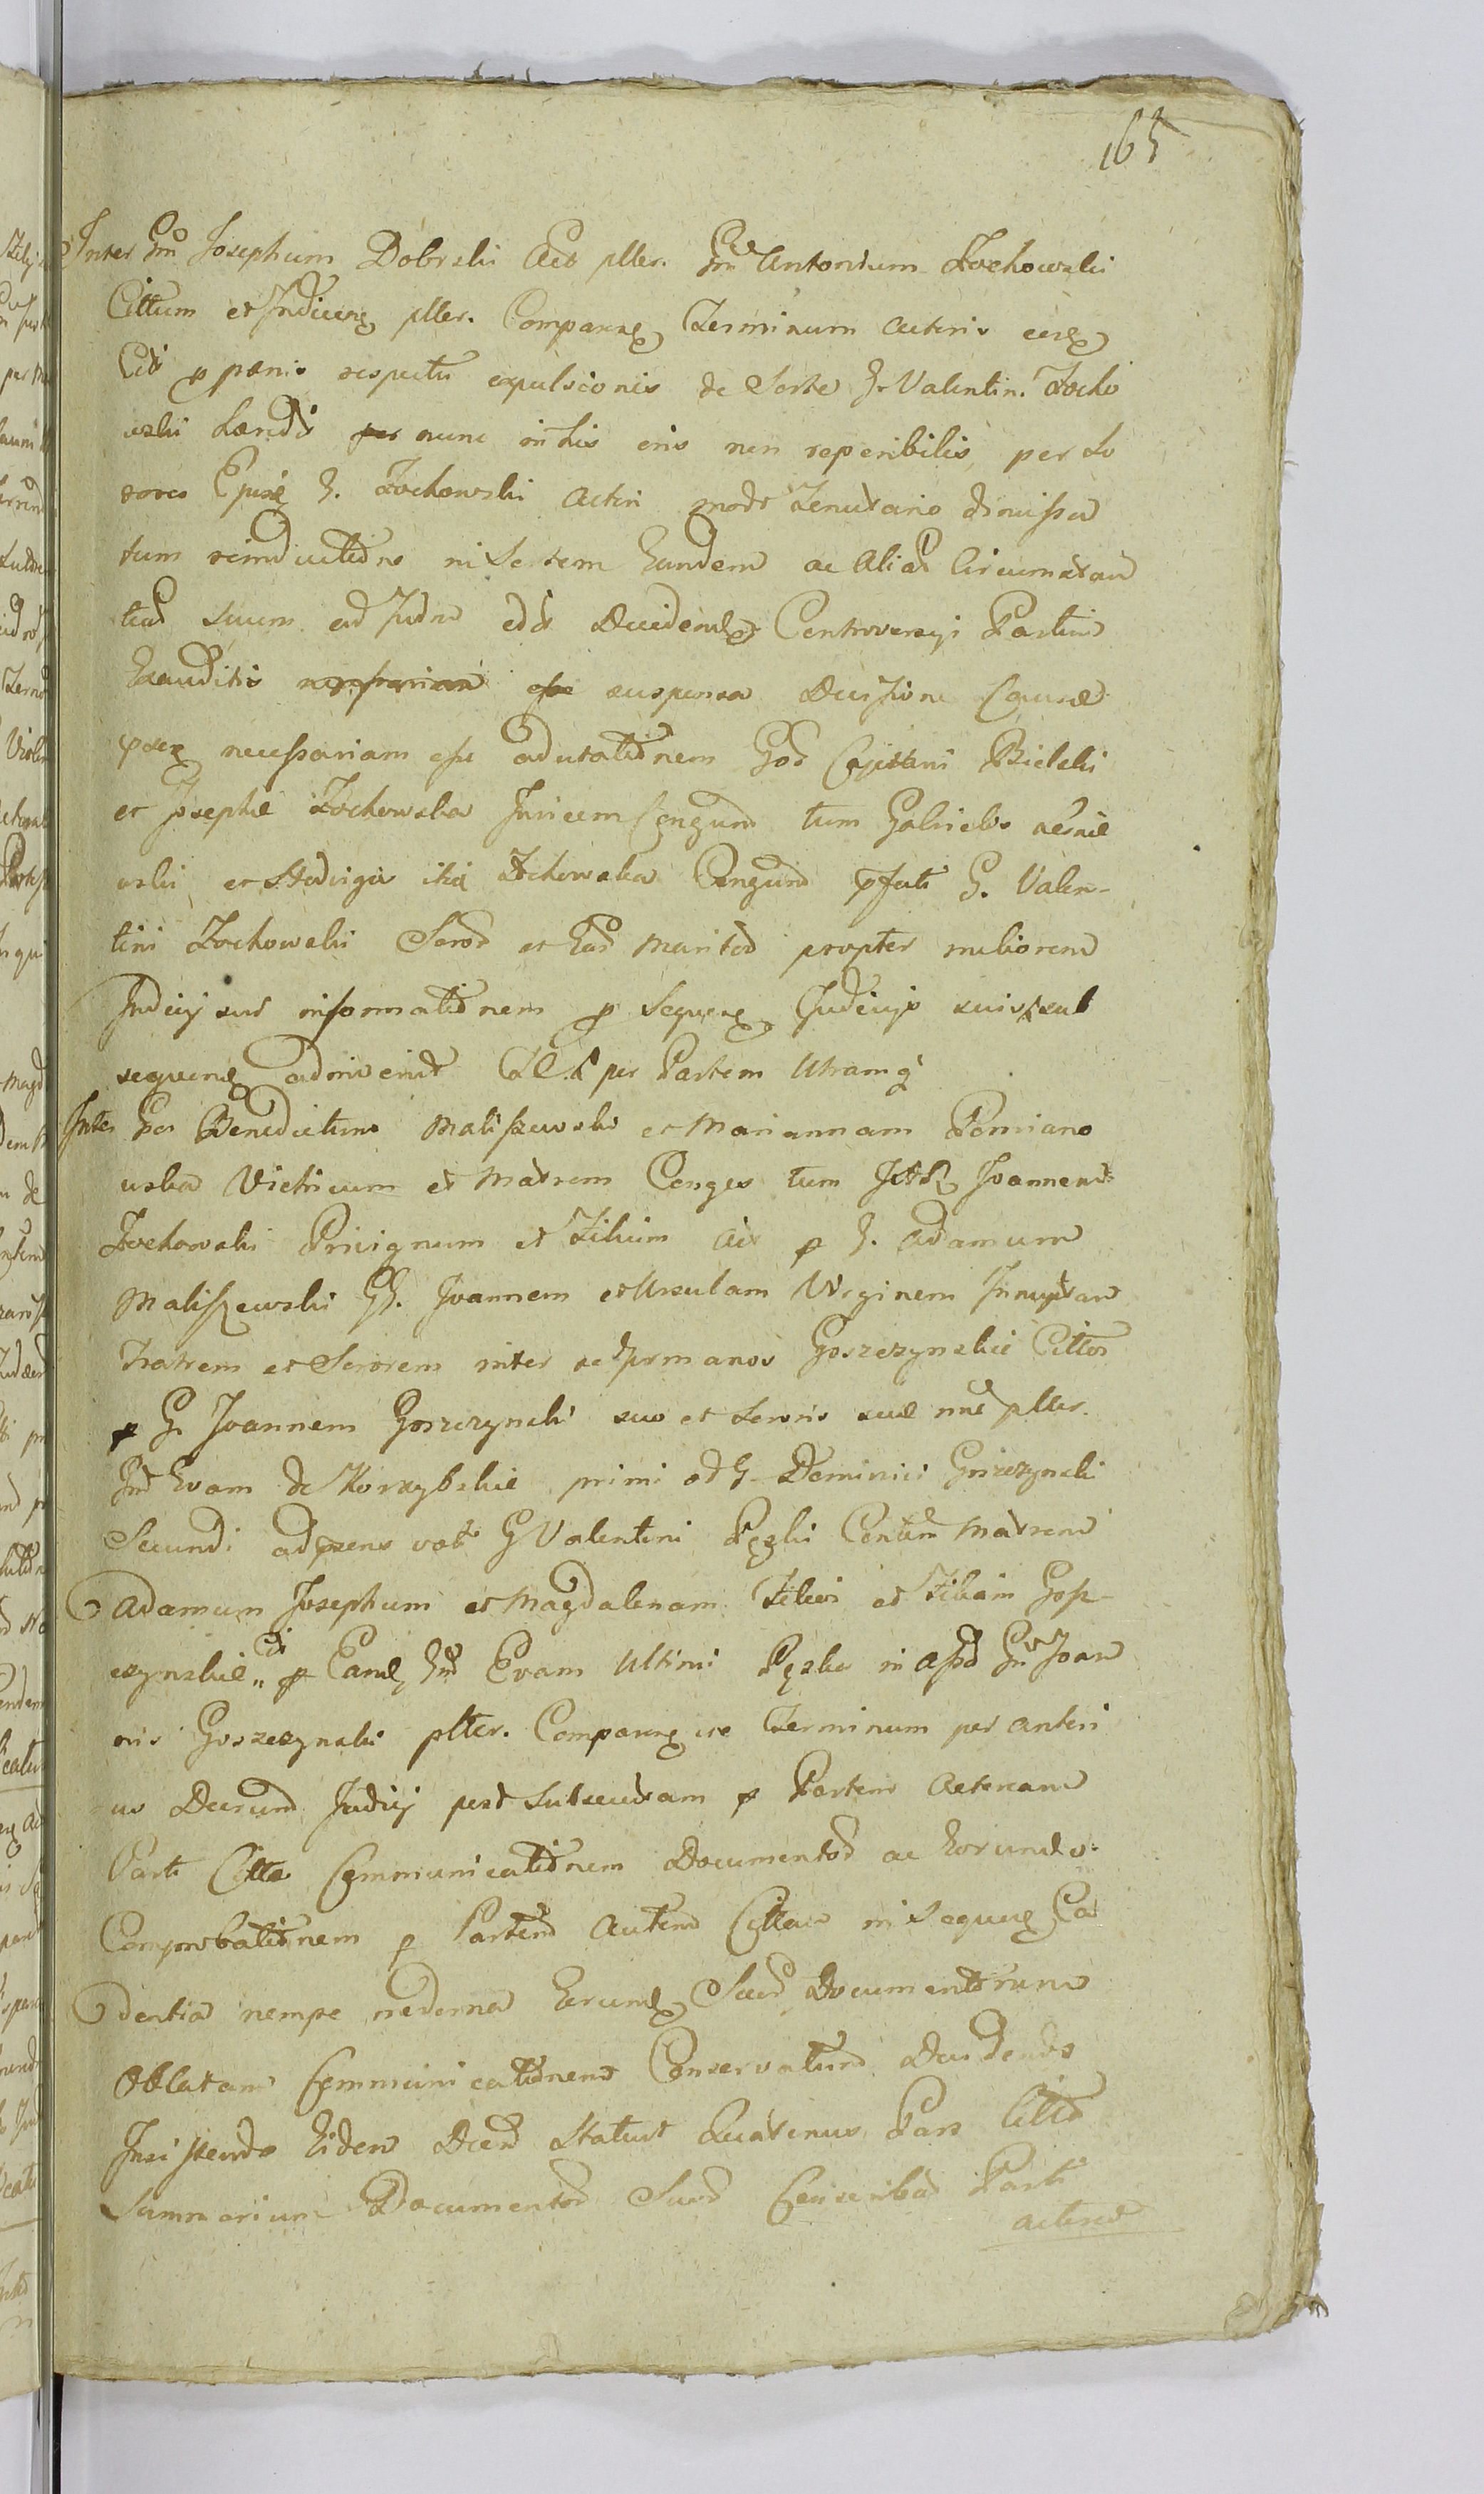 165
Inter Gnm Josephum Dobrski Act pller. Gm Antonium Zochowski
Cittum et Juducens pller. Comparens Terminum
Cit p pœnis respectu expulsionis de Sorte G. Valentin. Zocho
wski nunc in his oris non reperibilis per So
rores G. Zochowski Actri modo Tenutario dimissa
tum reinductione in Sortem Eandem ac aliad Circumstan
tiad suum ad Decidend Controversyi Partium
Exauditis necessariam esse suspensa Decisione Causæ
necessariam esse adcitationem God Cajetani Bielski
et Josephæ Zochowska Invicem Congund tum Gabrielis
wski et Hedvigis Zochowska Congund G. Valen-
tini Zochowski Sorod et Ead Maritod propter meliorem
Judicij sui informationem p Sequens Judicijs suis sub
sequens adinvenit per Partem Utramq
Inter Gos Benedictum Maliszewski et Mariannam Pomiano
wska Vitricum et Matrem Conges tum Joannem
Zochowski Privignum et Filium Act p G. Adamum
Maliszewski GG. Joannem et Ursulam Virginem Innuptam
Fratrem et Sororem inter se Germanos Goszczynskie Cittos
p G. Joannem Goszczynski suo et Sororis suæ nne pller.
Gnd Evam de Korzybskie primi od G. Dominici Goszczynski
Secundi ad præns voti G Valentini Pęzki Contem Matrem
Adamum Josephum et Magdalenam Filios et Filiam Gosz-
czynskie p Eand Gnd Evam Ultimi Pęzka in Assd Gn Joan
nis Goszczynski pller. Comparens ice Terminum per anteri
us Decrund Judicij post Subsecutam p Partem Actoream
Parti Citta Communicationem Documentod ac Eorund
Comprobationem p Partem Autem Cittam in Sequens Ca
dentia nempe Eorund Suod Documentorum
Oblatam Communicationem Conservatum Decidendo
Insistendo Eidem Decre Statut Quatenus Pars Citta
Summarium Documentod Suod Conscribat Parti
actreæ